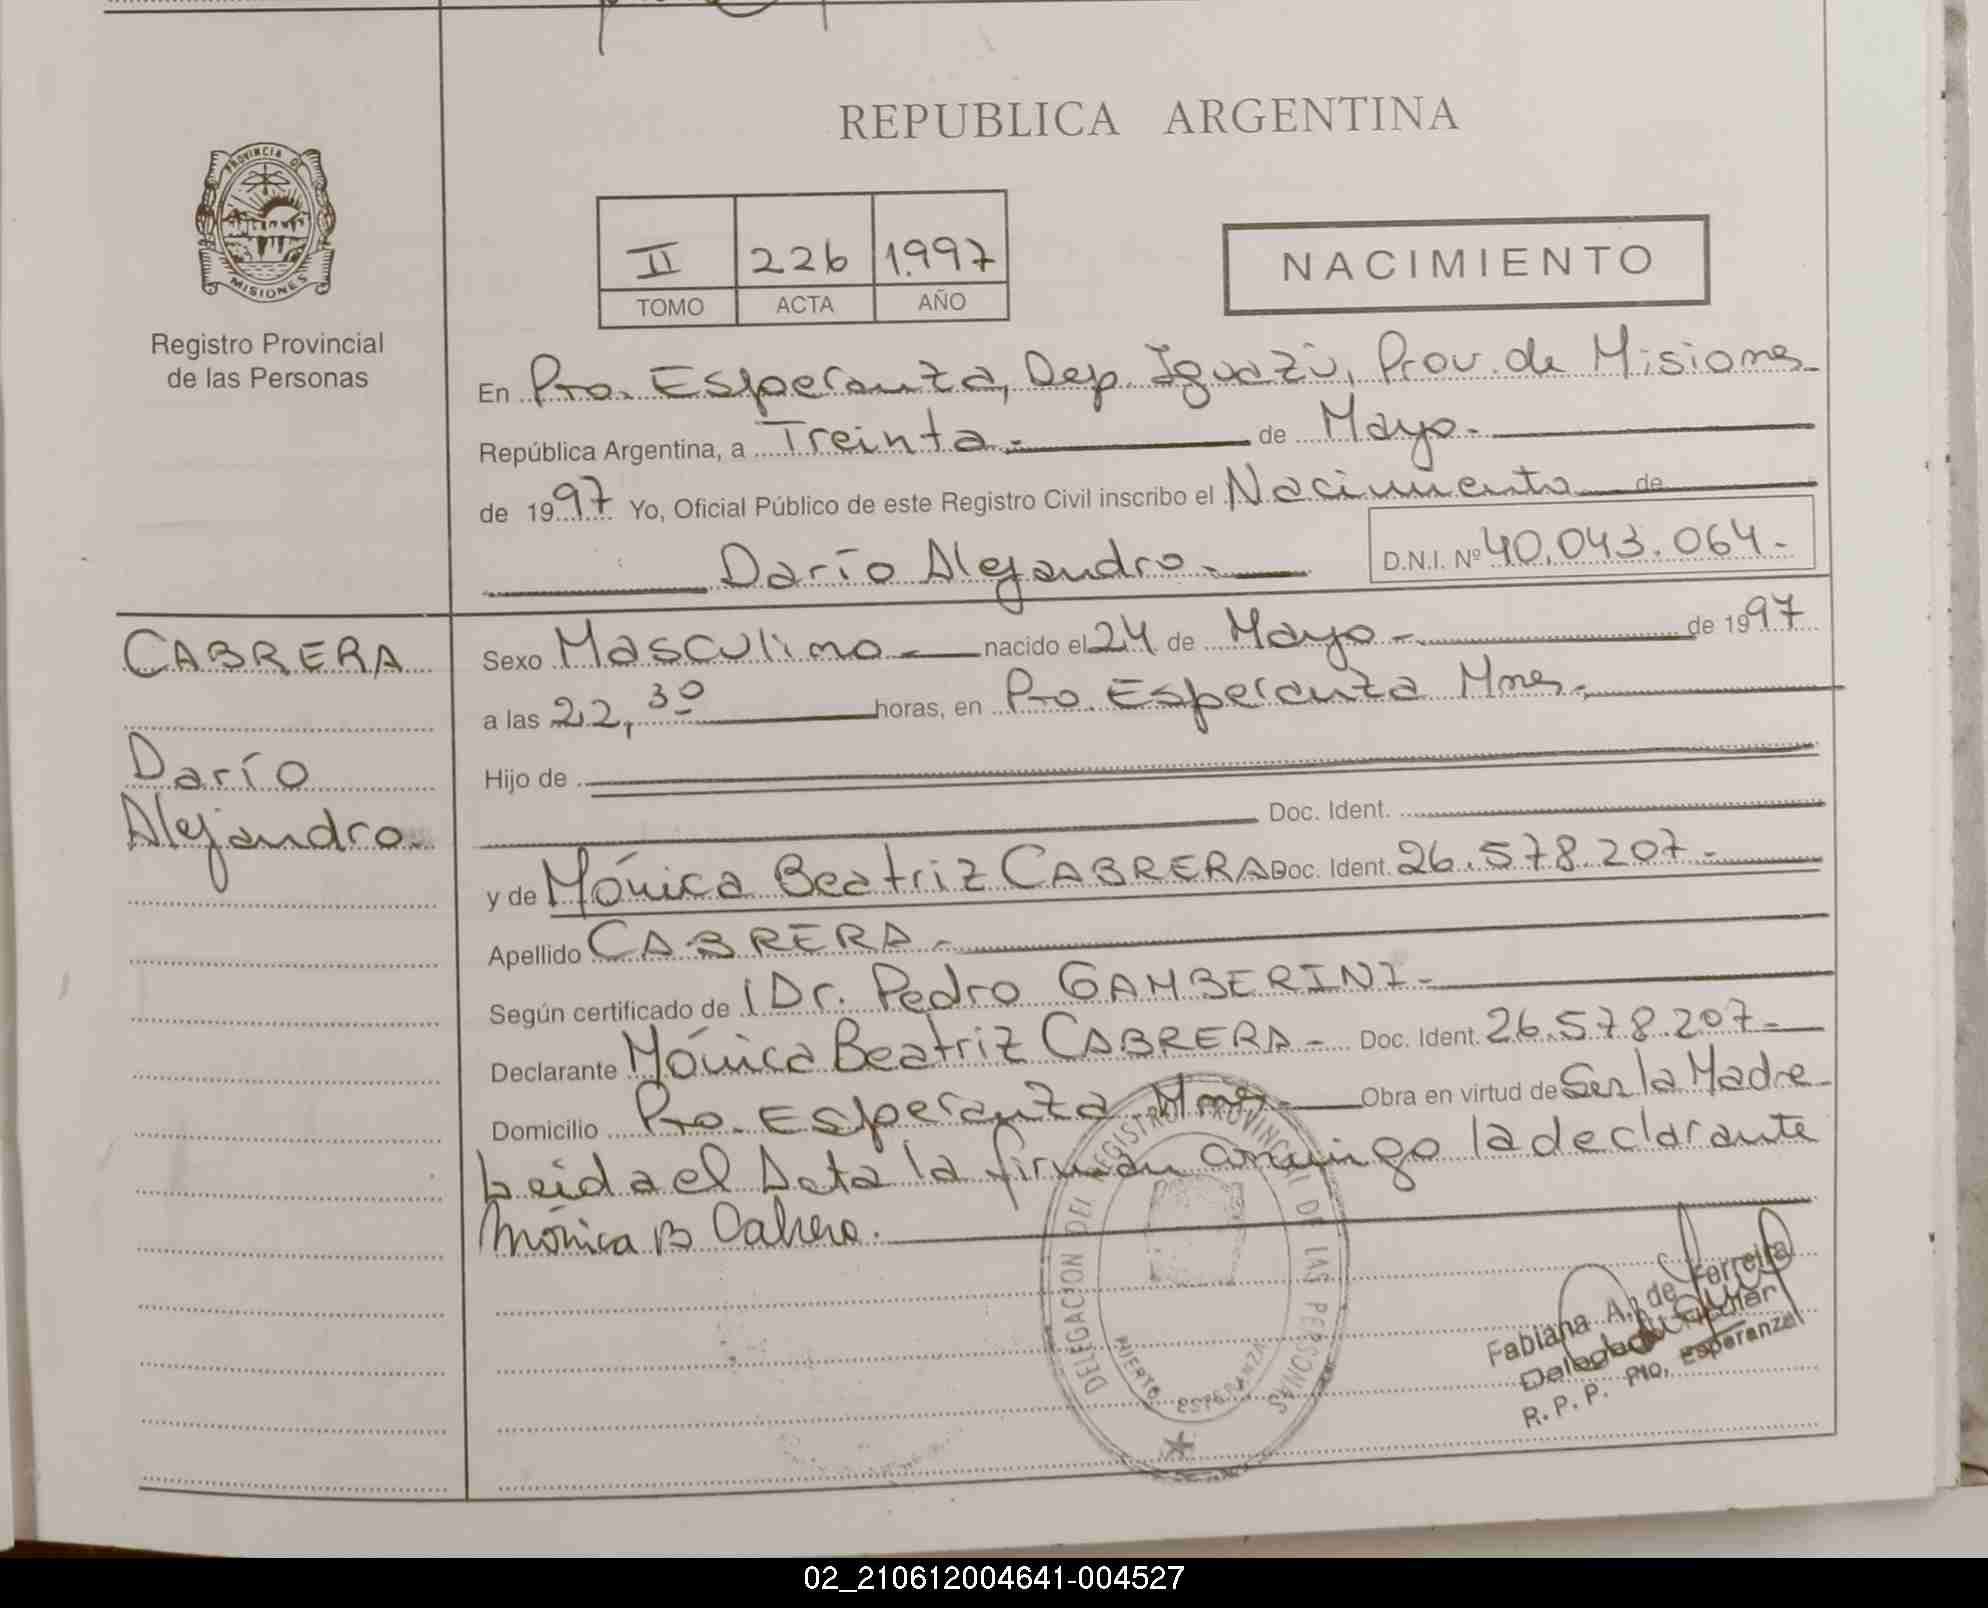 REPUBLICA ARGENTINA
PROVINCIA DE
MISIONES
Registro Provincial
de las Personas
II 226 1.997
TOMO ACTA AÑO
NACIMIENTO
En Pto. Esperanza, Dep. Iguazú, Prov. de Misiones
República Argentina, a Treinta.- de Mayo.-
de 1997 Yo, Oficial Público de este Registro Civil inscribo el Nacimiento de
Darío Alejandro.- D.N.I. Nº 40.043.064.-
CABRERA
Darío
Alejandro.
Sexo Masculino nacido el 24 de Mayo - de 1997
a las 22,30 horas, en Pto. Esperanza Mnes.-
Hijo de
Doc. Ident.
y de Mónica Beatriz CABRERA Doc. Ident. 26.578.207.-
Apellido CABRERA.-
Según certificado de l Dr. Pedro GAMBERINI.-
Declarante Mónica Beatriz CABRERA.- Doc. Ident. 26.578.207.-
Domicilio Pto. Esperanza Mnes.- Obra en virtud de Ser la Madre
Leida el Acta la firman conmigo la declarante
Mónica B Cabrera.
DELEGACION DEL REGISTRO PROVINCIAL DE LAS PERSONAS
PUERTO ESPERANZA
Fabiana A. de Ferreira
Delegada Titular
R.P.P. Pto. Esperanza
02_210612004641-004527